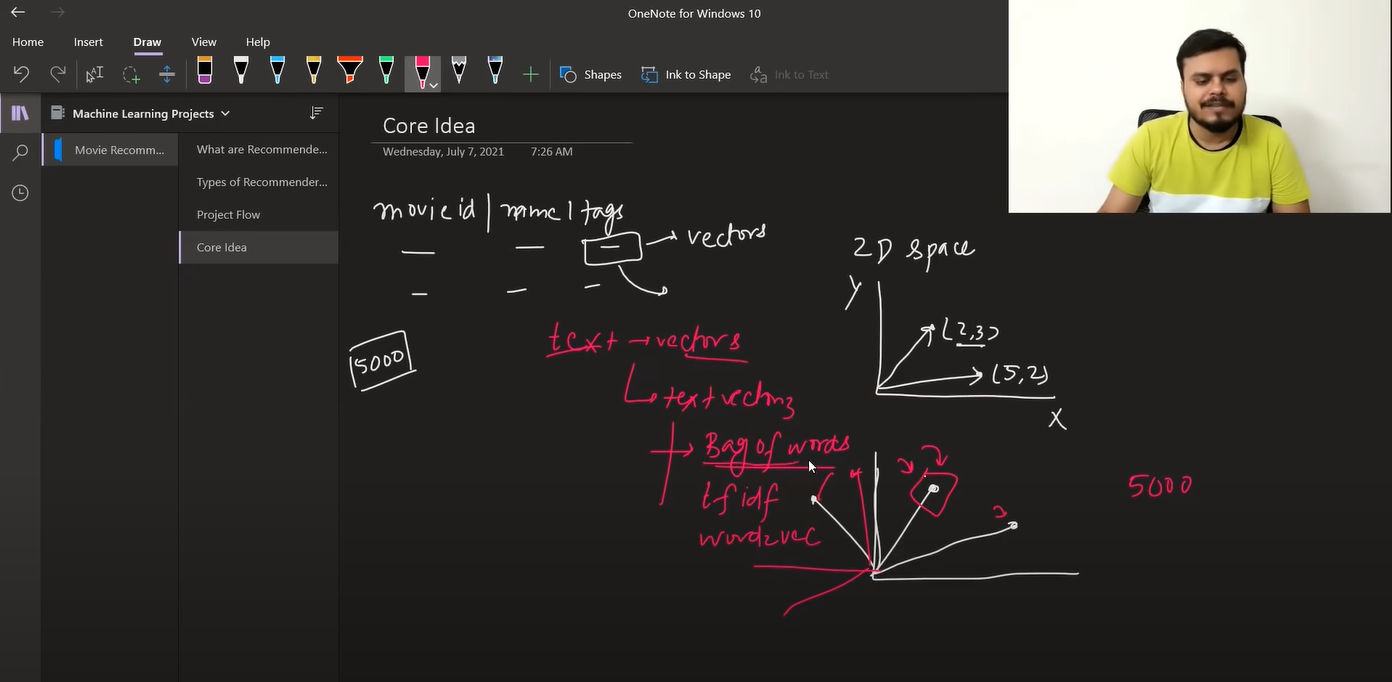 OneNote for Windows 10
Home Insert Draw View Help
Shapes Ink to Shape Ink to Text
Machine Learning Projects
Movie Recomm...
What are Recommende...
Types of Recommender...
Project Flow
Core Idea
Core Idea
Wednesday, July 7, 2021 7:26 AM
movie id | name | tags
vectors
5000
text → vectors
text vectorz
Bag of words
tfidf
word2vec
2D space
Y
(2,3)
(5,2)
X
5000